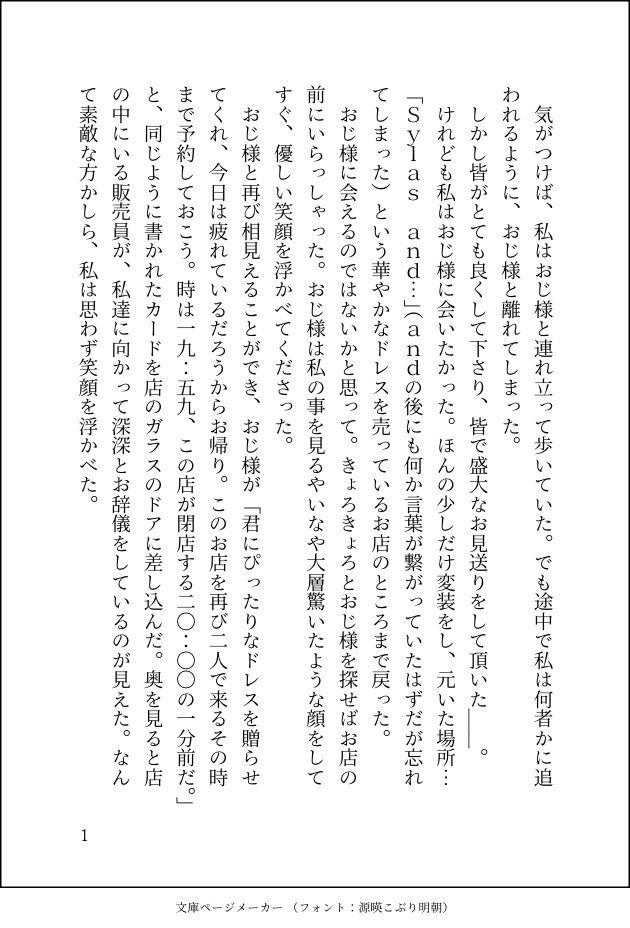 気がつけば、私はおじ様と連れ立って歩いていた。でも途中で私は何者かに追
われるように、おじ様と離れてしまった。
　しかし皆がとても良くして下さり、皆で盛大なお見送りをして頂いた――。
　けれども私はおじ様に会いたかった。ほんの少しだけ変装をし、元いた場所…
「Ｓｙｌａｓ　ａｎｄ…」（ａｎｄの後にも何か言葉が繋がっていたはずだが忘れ
てしまった）という華やかなドレスを売っているお店のところまで戻った。
　おじ様に会えるのではないかと思って。きょろきょろとおじ様を探せばお店の
前にいらっしゃった。おじ様は私の事を見るやいなや大層驚いたような顔をして
すぐ、優しい笑顔を浮かべてくださった。
　おじ様と再び相見えることができ、おじ様が「君にぴったりなドレスを贈らせ
てくれ、今日は疲れているだろうからお帰り。このお店を再び二人で来るその時
まで予約しておこう。時は一九：五九、この店が閉店する二〇：〇〇の一分前だ。」
と、同じように書かれたカードを店のガラスのドアに差し込んだ。奥を見ると店
の中にいる販売員が、私達に向かって深深とお辞儀をしているのが見えた。なん
て素敵な方かしら、私は思わず笑顔を浮かべた。
1
文庫ページメーカー（フォント：源暎こぶり明朝）